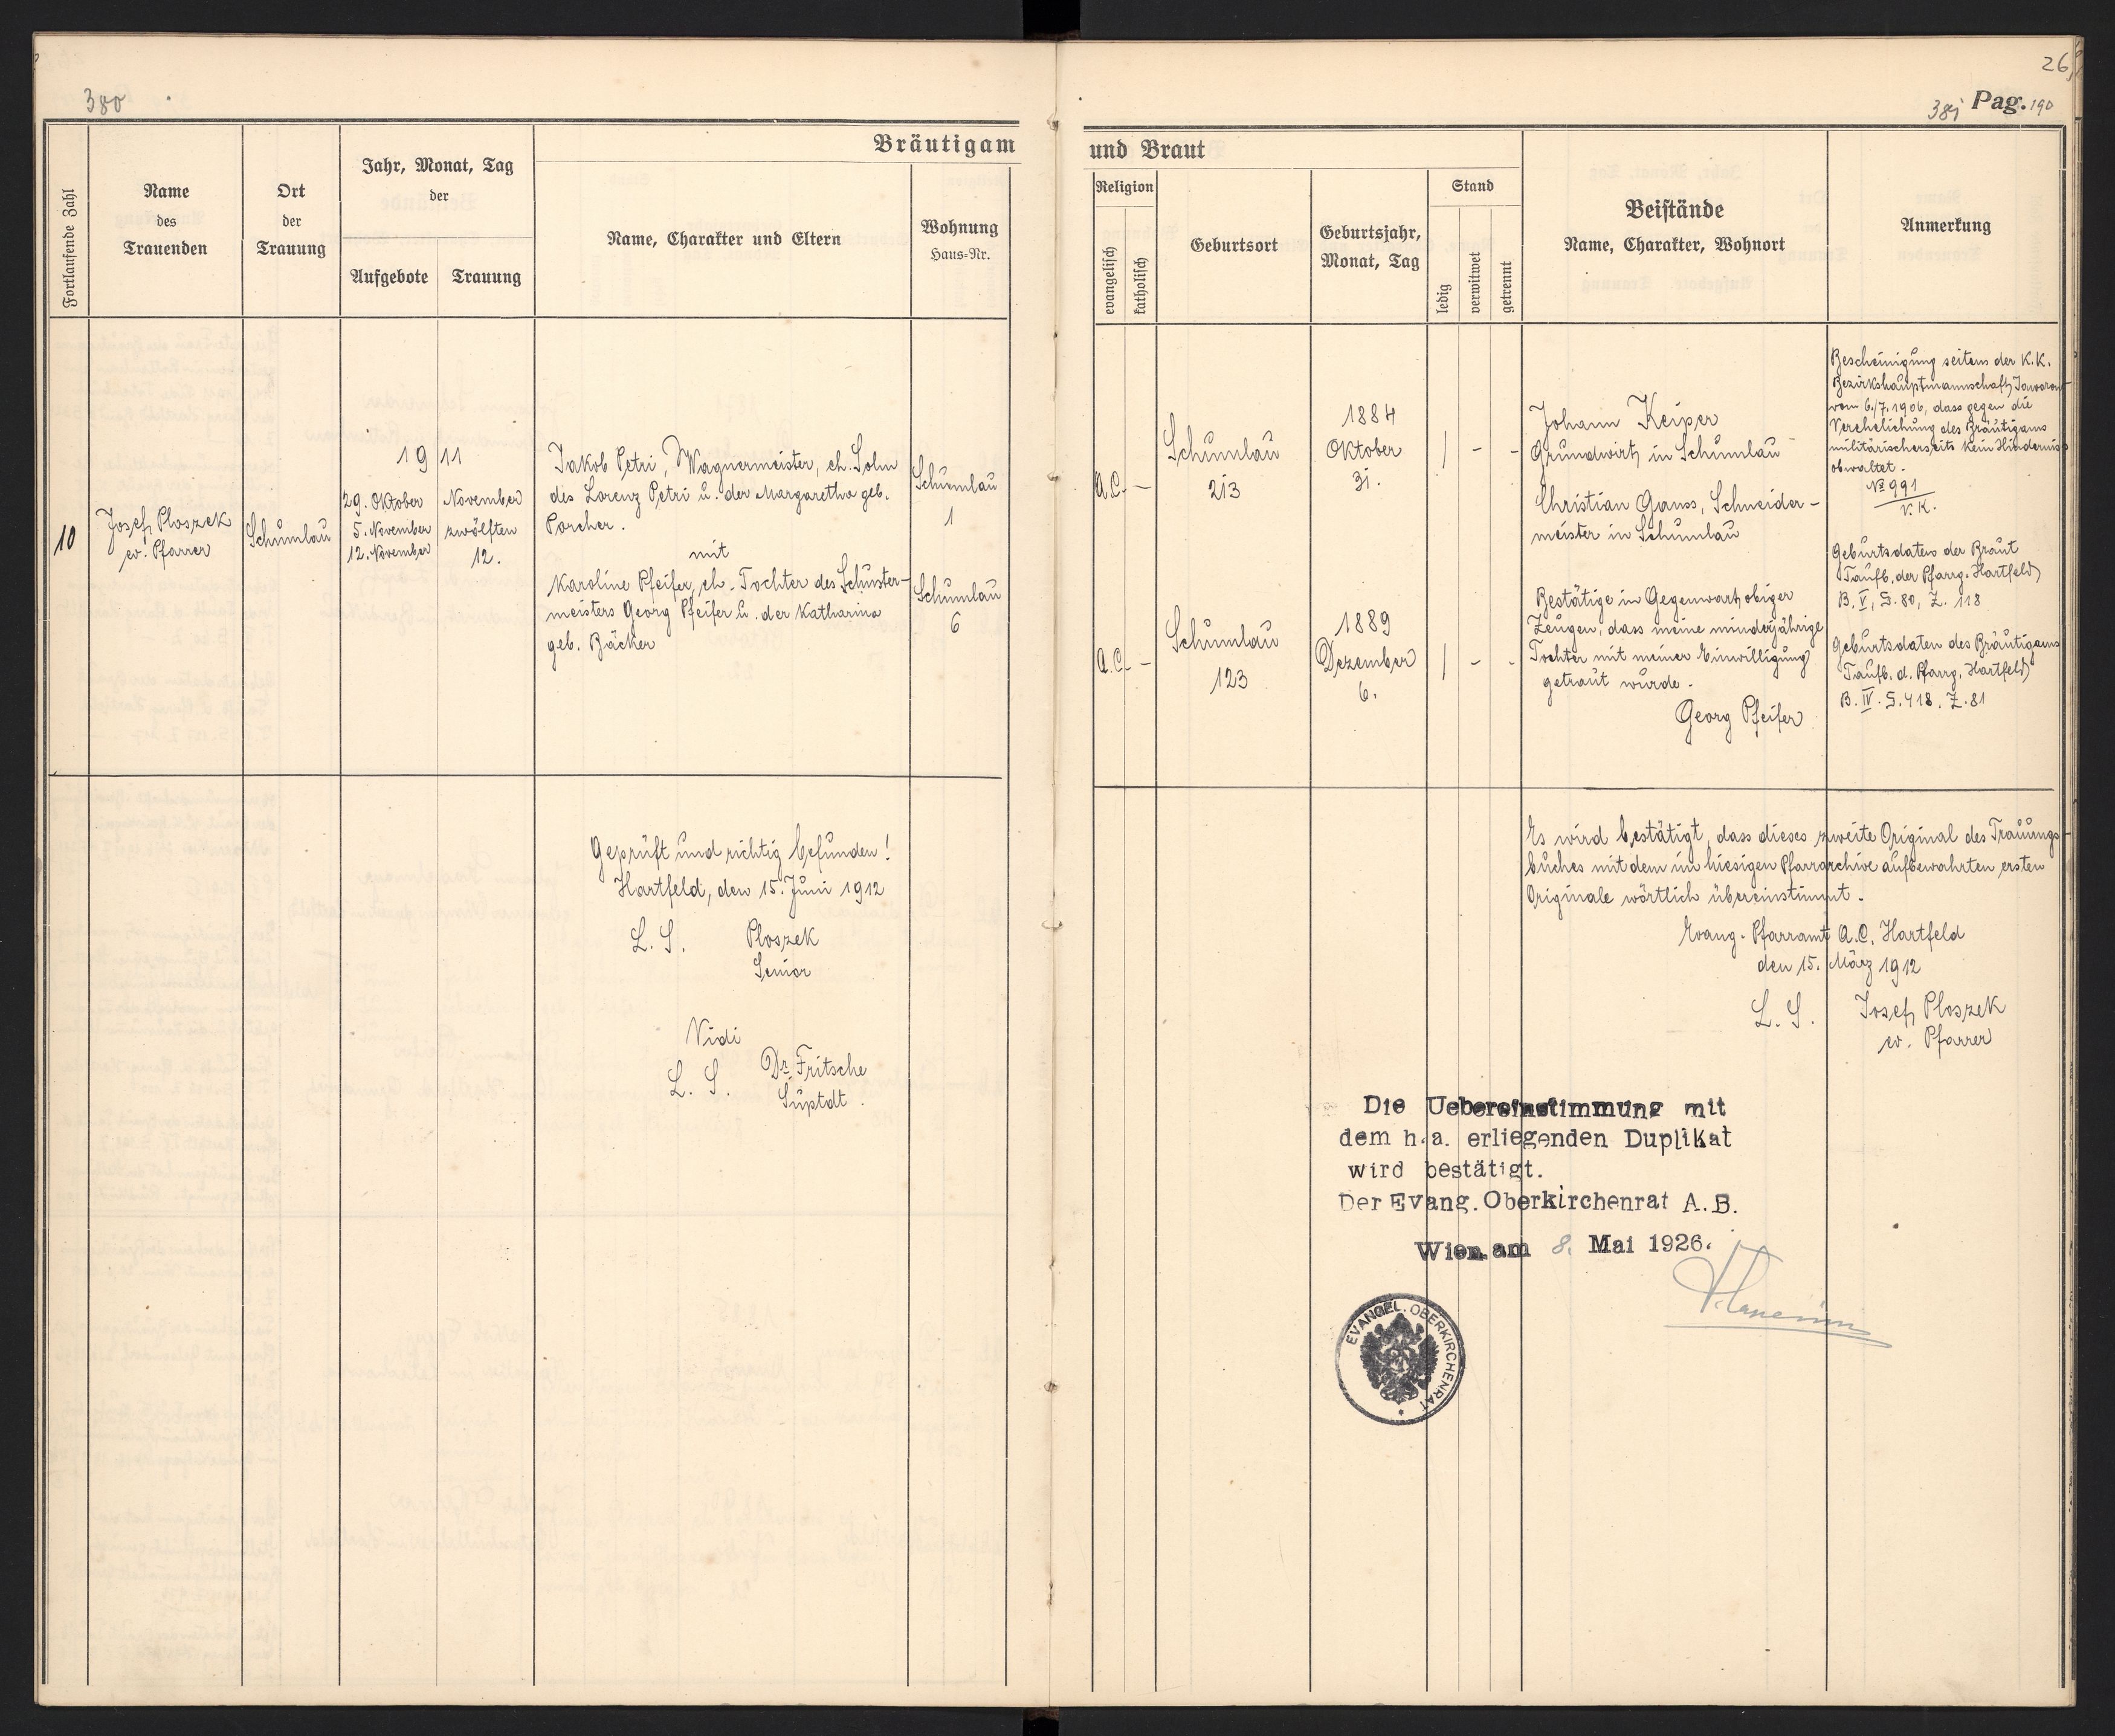 380
26
381 Pag. 190
Bräutigam
und Braut
Fortlaufende Zahl
Name
des
Trauenden
Ort
der
Trauung
Jahr, Monat, Tag
der
Aufgebote
Trauung
Name, Charakter und Eltern
Wohnung
Haus-Nr.
Religion
evangelisch
katholisch
Geburtsort
Geburtsjahr,
Monat, Tag
Stand
ledig
verwitwet
getrennt
Beistände
Name, Charakter, Wohnort
Anmerkung
10
Josef Ploszek
ev. Pfarrer
Schumlau
19 11
29. Oktober
5. November
12. November
November
zwölften
12.
Jakob Petri, Wagnermeister, eh. Sohn
des Lorenz Petri u. der Margaretha geb.
Porcher.
mit
Karoline Pfeifer, eh. Tochter des Schuster-
meisters Georg Pfeifer u. der Katharina
geb. Bäcker
Schumlau
1
Schumlau
6
A.C. –
Schumlau
213
1884
Oktober
31.
| - -
A.C. –
Schumlau
123
1889
Dezember
6.
| - -
Johann Keiper
Grundwirt in Schumlau
Christian Gauss, Schneider-
meister in Schumlau
Bestätige in Gegenwart obiger
Zeugen, dass meine minderjährige
Tochter mit meiner Einwilligung
getraut wurde.
Georg Pfeifer
Bescheinigung seitens der K.K.
Bezirkshauptmannschaft Jaworow
vom 6./7. 1906, dass gegen die
Verehelichung des Bräutigams
militärischerseits kein Hinderniss
obwaltet.
No 991
V.K.
Geburtsdaten der Braut
Taufb. der Pfarrg. Hartfeld
B. V, S. 80, Z. 118
Geburtsdaten des Bräutigams
Taufb. d. Pfarrg. Hartfeld
B. IV. S. 418. Z. 81
Geprüft und richtig befunden!
Hartfeld, den 15. Juni 1912
L. S. Ploszek
Senior
Vidi
L. S. Dr. Fritsche
Suptdt.
Es wird bestätigt, dass dieses zweite Original des Trauungs-
buches mit dem im hiesigen Pfarrarchive aufbewahrten ersten
Originale wörtlich übereinstimmt.
Evang. Pfarramt A.C. Hartfeld
den 15. März 1912
L. S. Josef Ploszek
ev. Pfarrer
Die Uebereinstimmung mit
dem h.a. erliegenden Duplikat
wird bestätigt.
Der Evang. Oberkirchenrat A.B.
Wien am 8. Mai 1926.
EVANGEL. OBERKIRCHENRAT